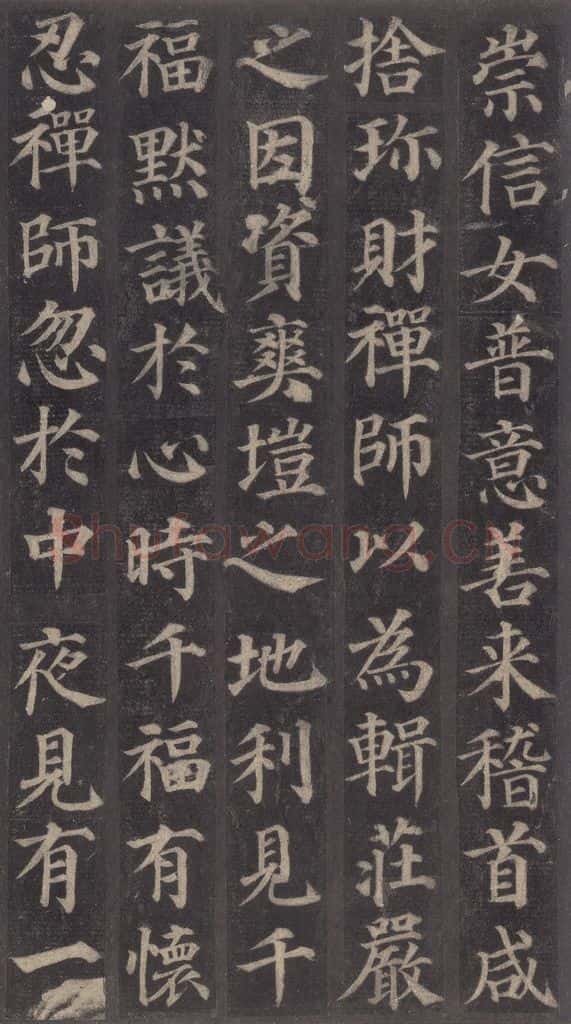 崇信女普意善来稽首咸
捨珎財禪師以為輯莊嚴
之因資爽塏之地利見千
福默議於心時千福有懷
忍禪師忽於中夜見有一
Shufawang.CN